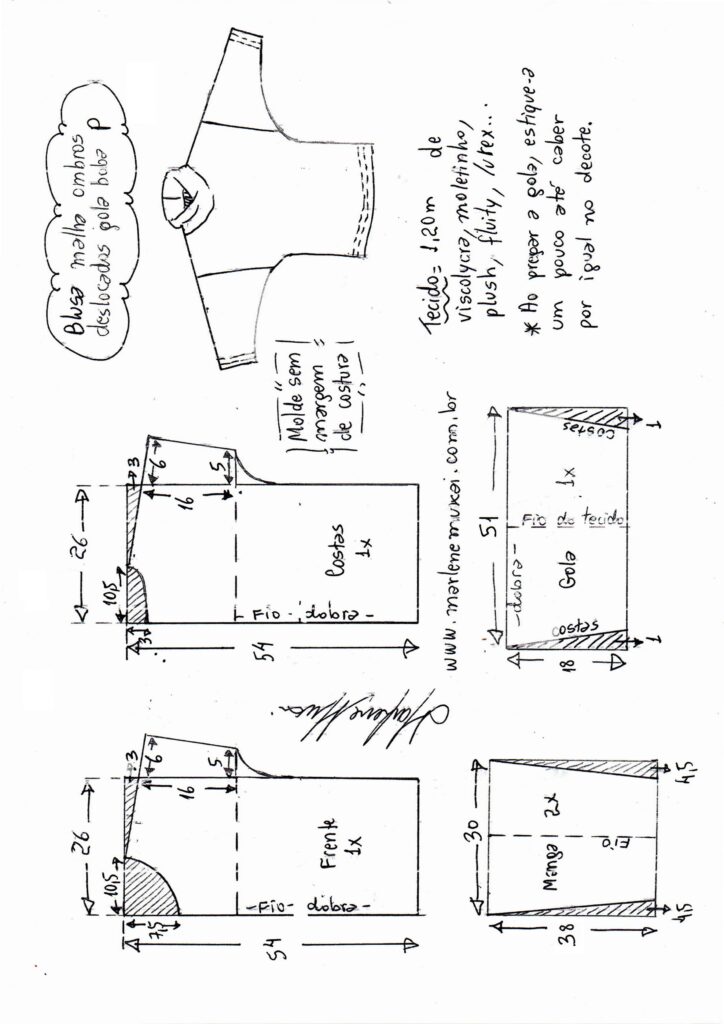 Blusa malha ombros
deslocados gola boba P
26
10,5
3
6
16
5
7,5
54
Frente
1x
-Fio- dobra-
26
10,5
3
6
16
5
3
54
Costas
1x
-Fio- dobra-
"Molde sem
margem
de costura"
30
Manga 2x
Fio
38
4,5
4,5
www.marlenemukai.com.br
51
-dobra-
Gola 1x
Fio do tecido
costas
costas
18
1
1
Tecido= 1,20m de
viscolycra, moletinho,
plush, fluity, lurex...
* Ao pregar a gola, estique-a
um pouco até caber
por igual no decote.